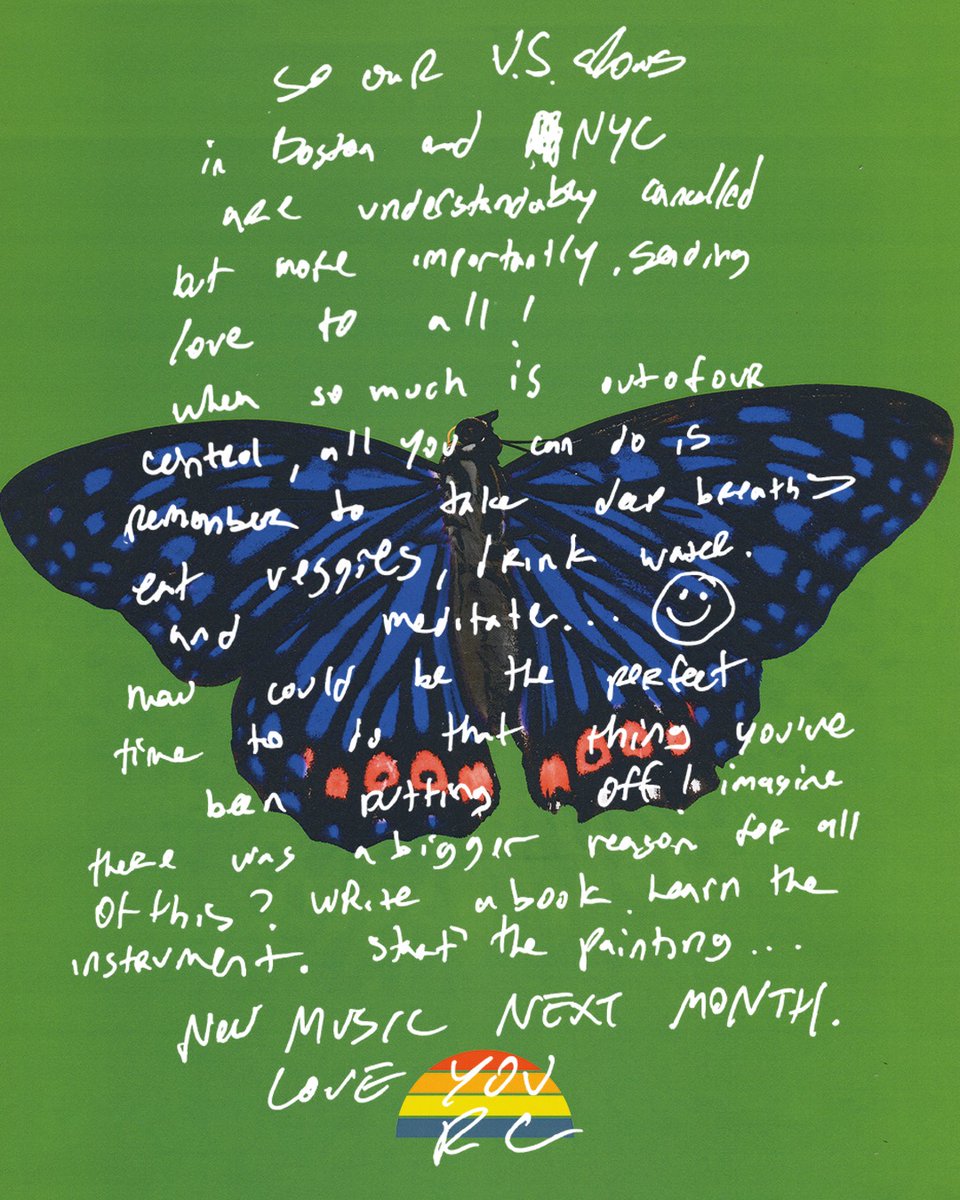 so our U.S. shows
in boston and NYC
are understandably cancelled
but more importantly, sending
love to all!
when so much is out of our
control, all you can do is
remember to take deep breaths
eat veggies, drink water.
and meditate....
now could be the perfect
time to do that thing you've
been putting off / imagine
there was a bigger reason for all
of this? write a book. learn the
instrument. start the painting...
NEW MUSIC NEXT MONTH.
LOVE YOU
RC